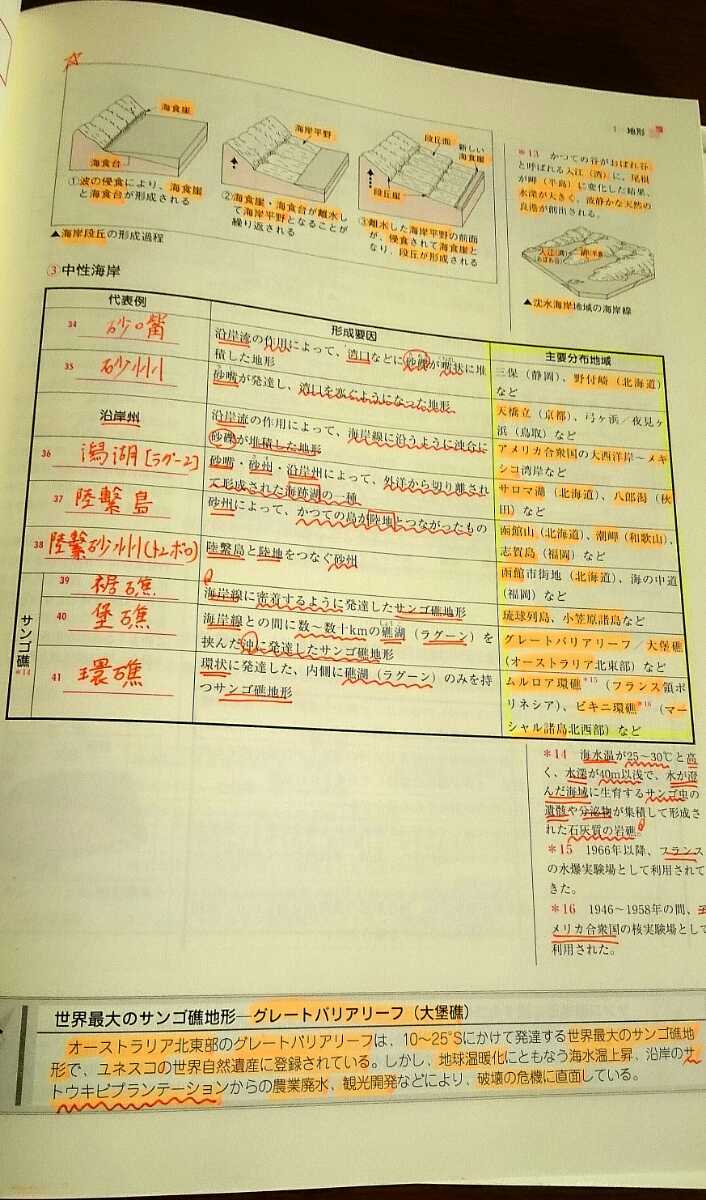 1 地形
海食崖
海食台
①波の侵食により、海食崖
と海食台が形成される
海岸平野
②海食崖・海食台が離水し
て海岸平野となることが
繰り返される
段丘面
新しい
海食崖
段丘崖
③離水した海岸平野の前面
が、侵食されて海食崖と
なり、段丘が形成される
▲海岸段丘の形成過程
*13 かつての谷がおぼれ谷
と呼ばれる入江(湾)に、尾根
が岬(半島)に変化した結果、
水深が大きく、波静かな天然の
良港が創出される。
入江(湾)
おぼれ谷
岬(半島)
▲沈水海岸地域の海岸線
③中性海岸
代表例
形成要因
主要分布地域
34 砂嘴
沿岸流の作用によって、湾口などに砂礫が嘴状に堆
積した地形
三保(静岡)、野付崎(北海道)
など
35 砂州
砂嘴が発達し、湾口を塞ぐようになった地形
天橋立(京都)、弓ヶ浜/夜見ヶ
浜(鳥取)など
沿岸州
沿岸流の作用によって、海岸線に沿うように沖合に
砂礫が堆積した地形
アメリカ合衆国の大西洋岸~メキ
シコ湾岸など
36 潟湖[ラグーン]
砂嘴・砂州・沿岸州によって、外洋から切り離され
て形成された海跡湖の一種
サロマ湖(北海道)、八郎潟(秋
田)など
37 陸繋島
砂州によって、かつての島が陸地とつながったもの
函館山(北海道)、潮岬(和歌山)、
志賀島(福岡)など
38 陸繋砂州(トンボロ)
陸繋島と陸地をつなぐ砂州
函館市街地(北海道)、海の中道
(福岡)など
サンゴ礁*14
39 裾礁
海岸線に密着するように発達したサンゴ礁地形
琉球列島、小笠原諸島など
40 堡礁
海岸線との間に数~数十kmの礁湖(ラグーン)を
挟んだ沖に発達したサンゴ礁地形
グレートバリアリーフ/大堡礁
(オーストラリア北東部)など
41 環礁
環状に発達した、内側に礁湖(ラグーン)のみを持
つサンゴ礁地形
ムルロア環礁*15(フランス領ポ
リネシア)、ビキニ環礁*16(マー
シャル諸島北西部)など
*14 海水温が25~30℃と高
く、水深が40m以浅で、水が澄
んだ海域に生育するサンゴ虫の
遺骸や分泌物が集積して形成さ
れた石灰質の岩礁。
*15 1966年以降、フランス
の水爆実験場として利用されて
きた。
*16 1946~1958年の間、ア
メリカ合衆国の核実験場として
利用された。
世界最大のサンゴ礁地形―グレートバリアリーフ(大堡礁)
オーストラリア北東部のグレートバリアリーフは、10~25°Sにかけて発達する世界最大のサンゴ礁地
形で、ユネスコの世界自然遺産に登録されている。しかし、地球温暖化にともなう海水温上昇、沿岸のサ
トウキビプランテーションからの農業廃水、観光開発などにより、破壊の危機に直面している。